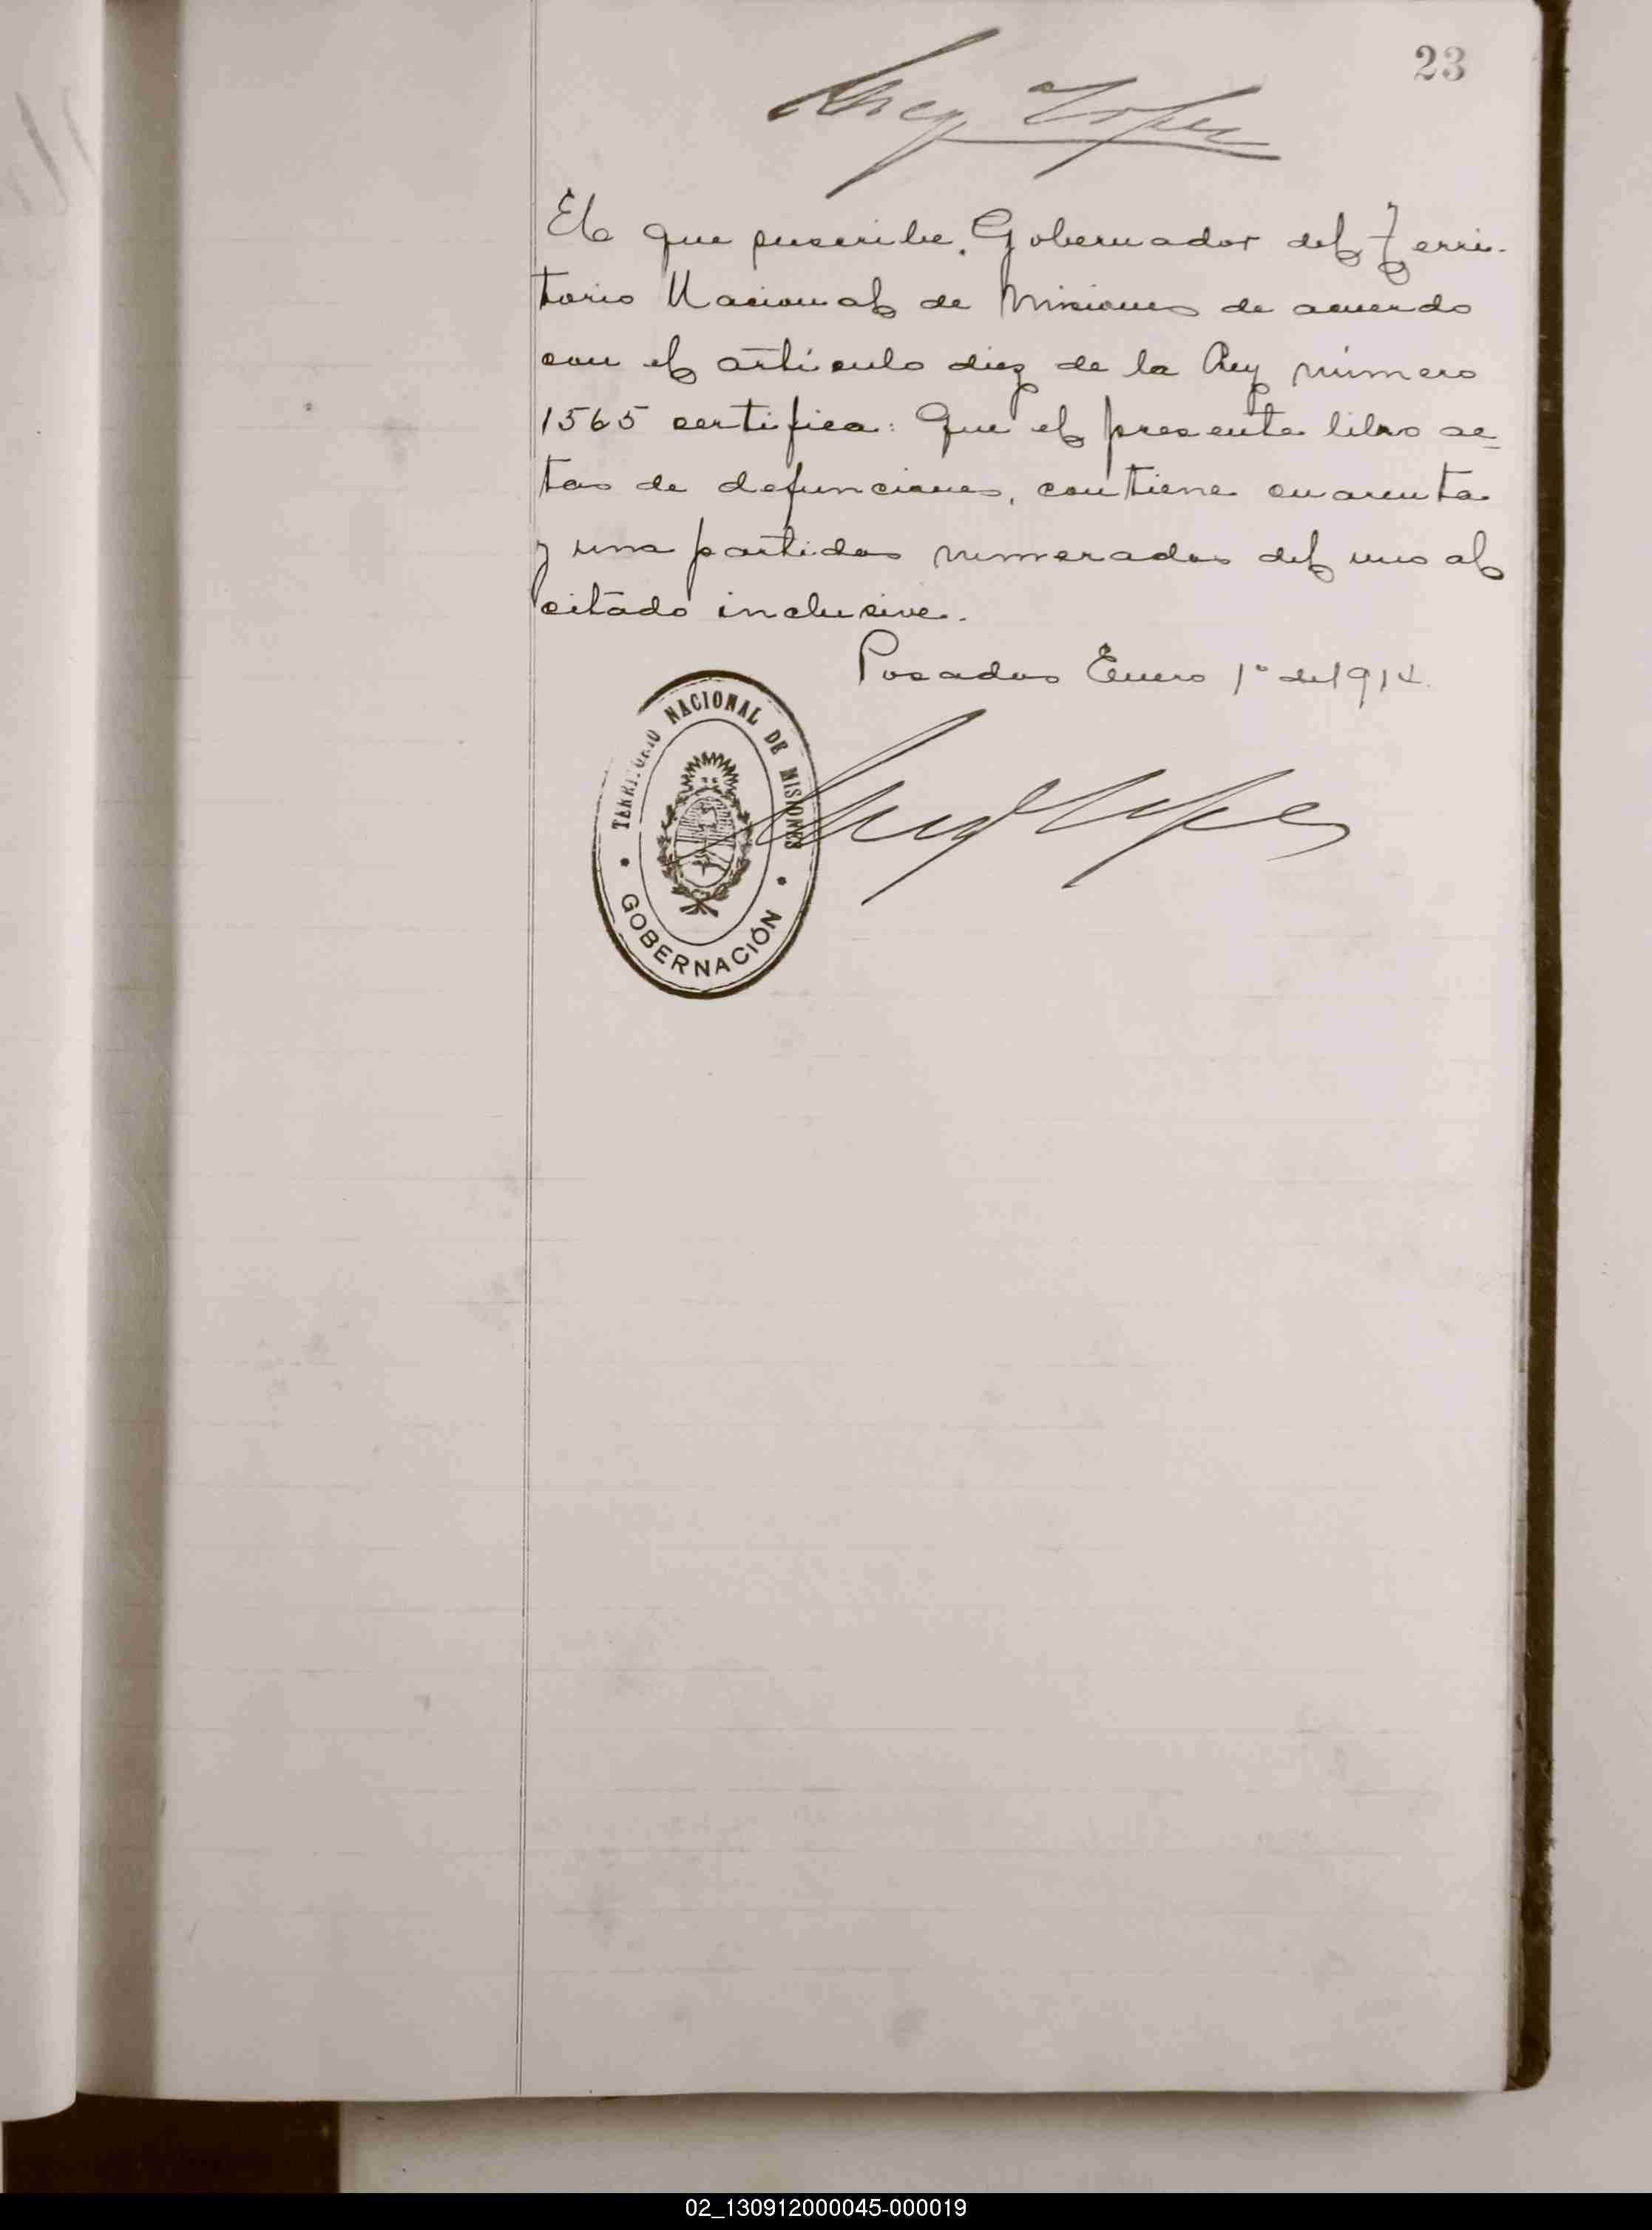 23
Lopez
El que suscribe, Gobernador del Terri-
torio Nacional de Misiones de acuerdo
con el artículo diez de la Ley número
1565 certifica: Que el presente libro ac-
tas de defunciones, contiene cuarenta
y una partidas numeradas del uno al
citado inclusive.
Posadas Enero 1º de 1914.
TERRITORIO NACIONAL DE MISIONES
GOBERNACIÓN
Lopez
02_130912000045-000019